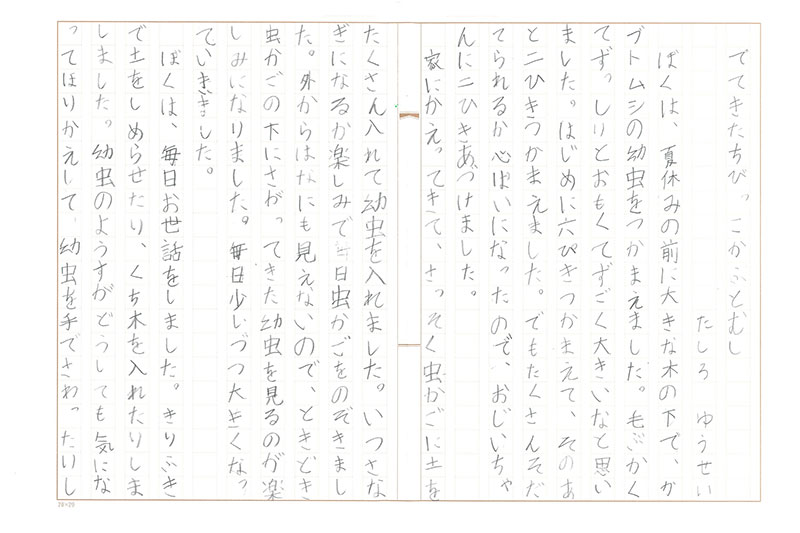 でてきたちびっこかぶとむし
たしろ　ゆうせい
ぼくは、夏休みの前に大きな木の下で、か
ブトムシの幼虫をつかまえました。毛ぶかく
てずっしりとおもくてずごく大きいなと思い
ました。はじめに六ぴきつかまえて、そのあ
と二ひきつかまえました。でもたくさんそだ
てられるか心ぱいになったので、おじいちゃ
んに二ひきあづけました。
家にかえってきて、さっそく虫かごに土を
たくさん入れて幼虫を入れました。いつさな
ぎになるか楽しみで毎日虫かごをのぞきまし
た。外からはなにも見えないので、ときどき
虫かごの下にさがってきた幼虫を見るのが楽
しみになりました。毎日少しづつ大きくなっ
ていきました。
ぼくは、毎日お世話をしました。きりふき
で土をしめらせたり、くち木を入れたりしま
しました。幼虫のようすがどうしても気にな
ってほりかえして、幼虫を手でさわったりし
20×20